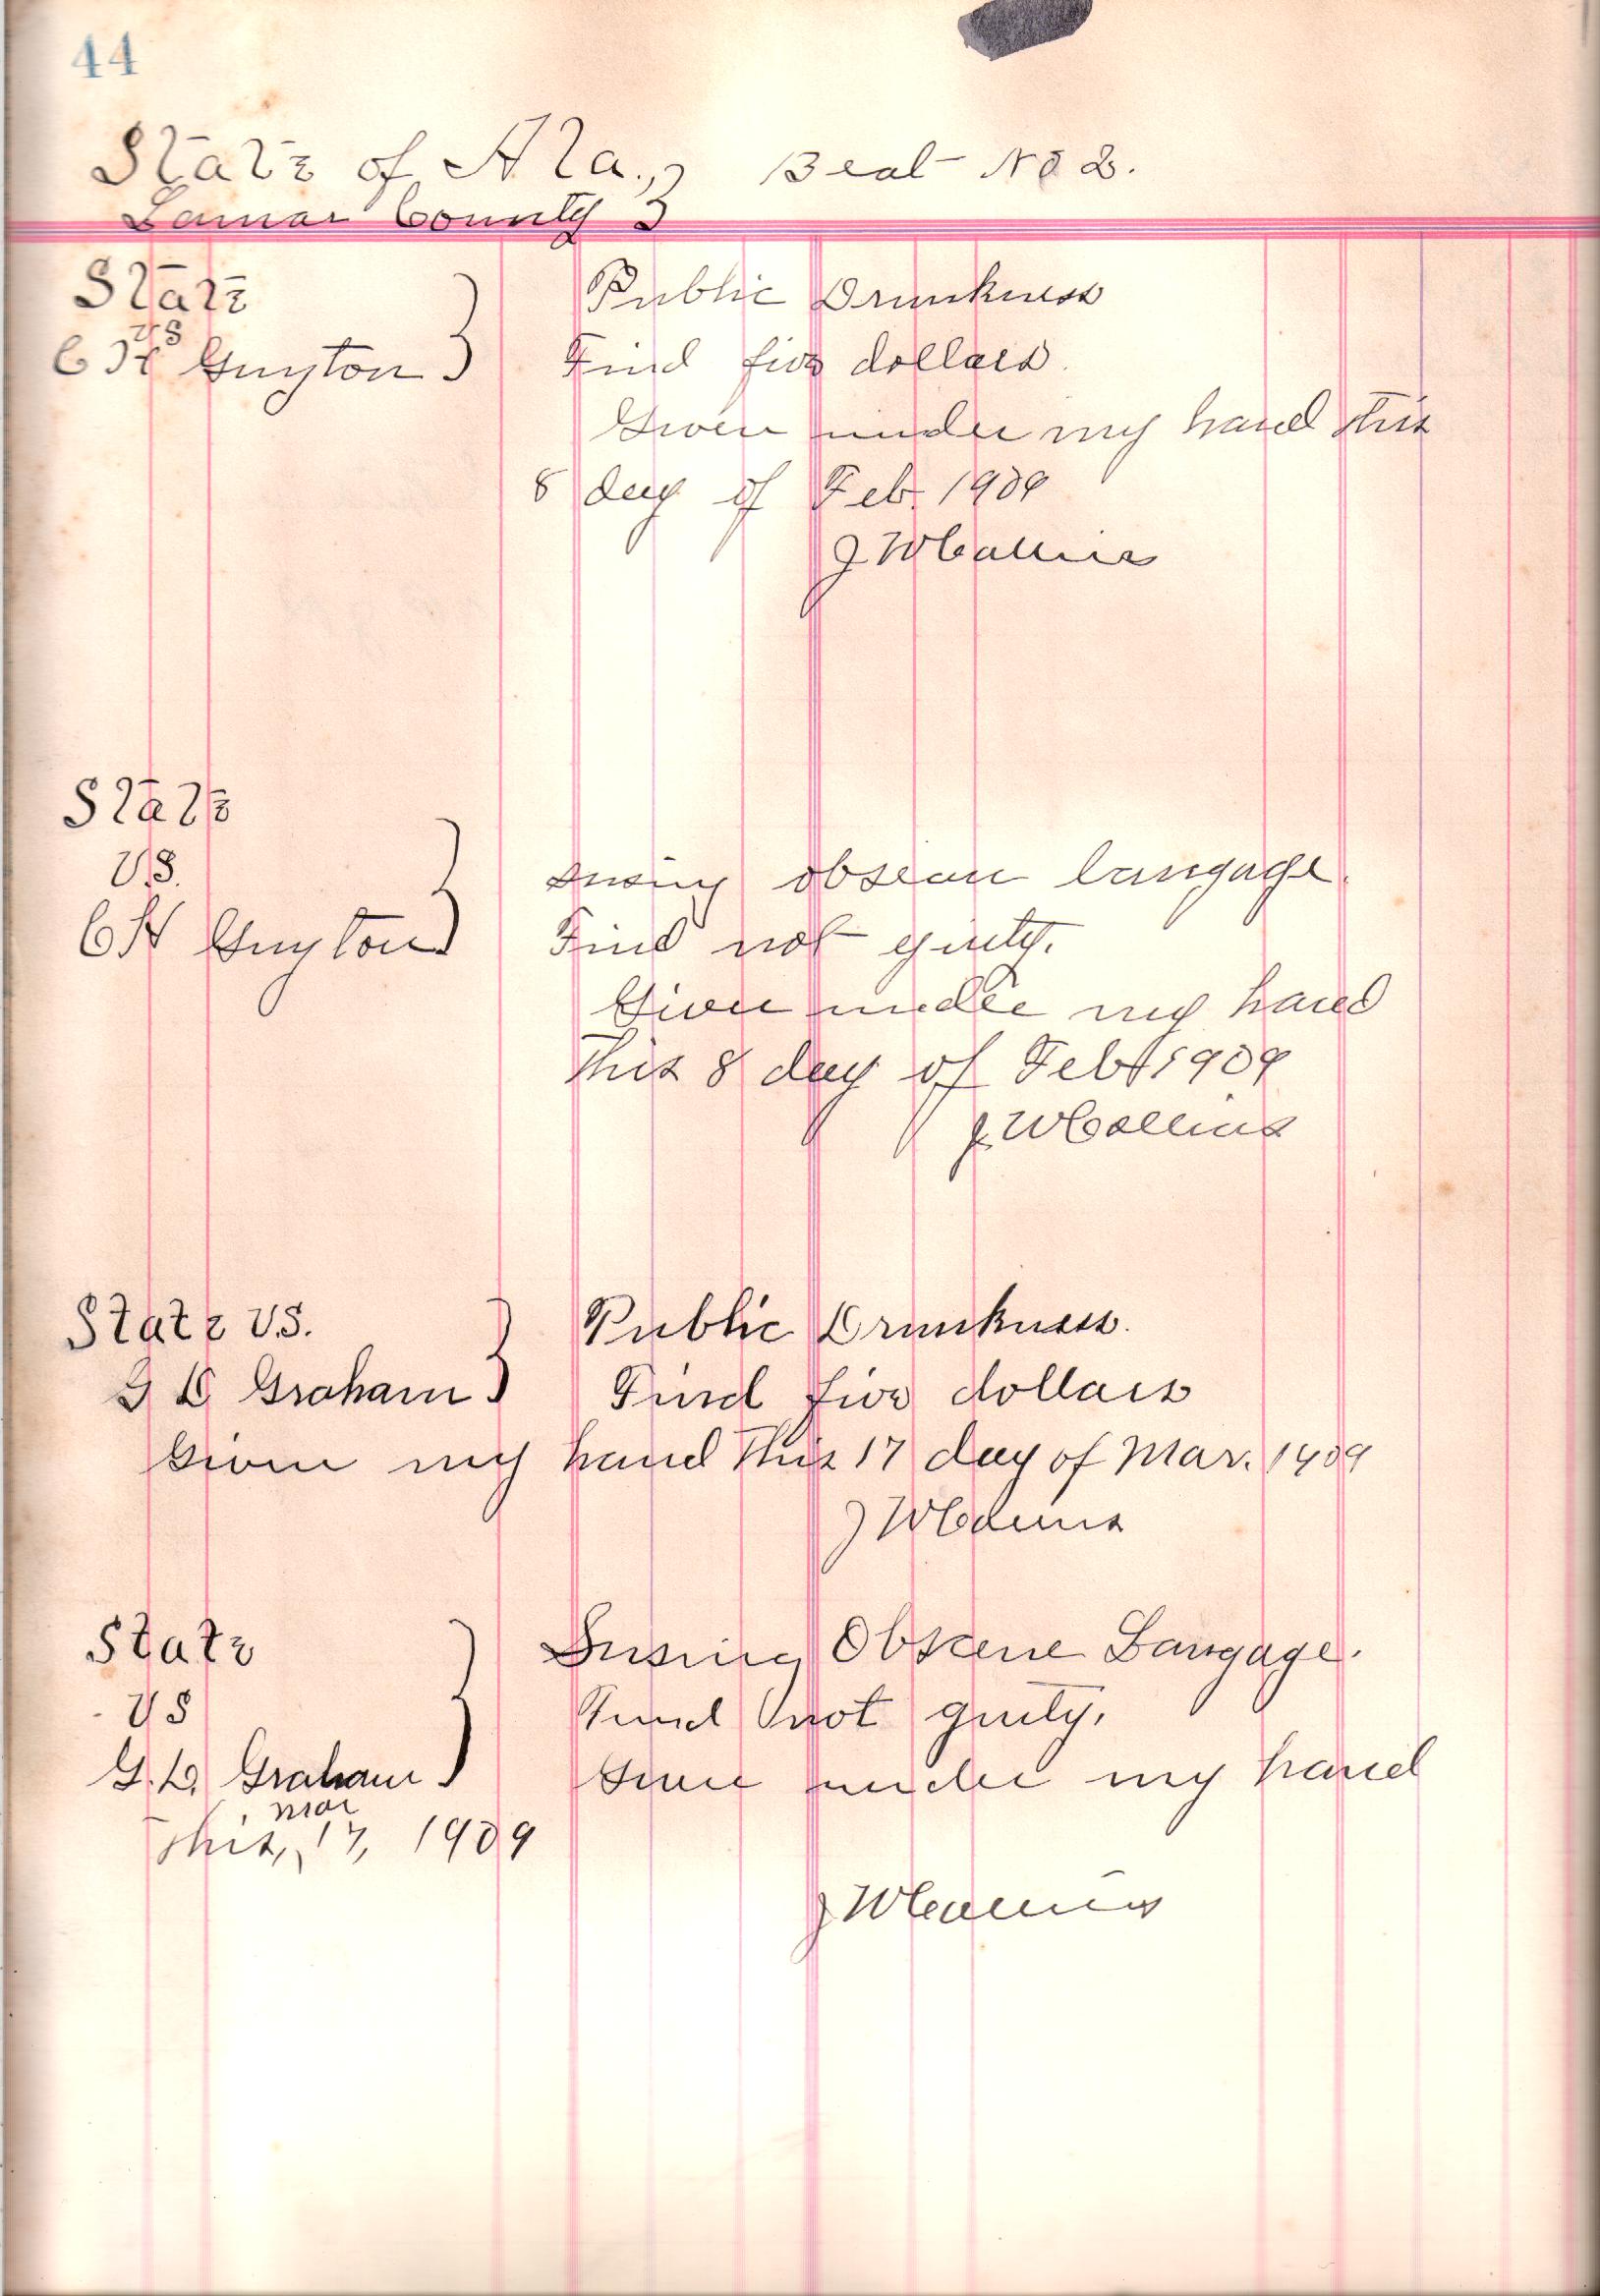 44
State of Ala., } Beat No 2.
Lamar County }
State Public Drunkness
vs
C H Guyton } Find five dollars.
Given under my hand this
8 day of Feb. 1909
J W Collins
State
V.S.
C H Guyton } using obsean langage.
Find not guity.
Given under my hand
This 8 day of Feb 1909
J W Collins
State V.S. } Public Drunkness.
G D Graham } Find five dollars
Given my hand This 17 day of Mar. 1909
J W Collins
State Using Obscene Langage.
VS } Find not guity,
G. D. Graham Given under my hand
mar
This, 17, 1909
J W Collins